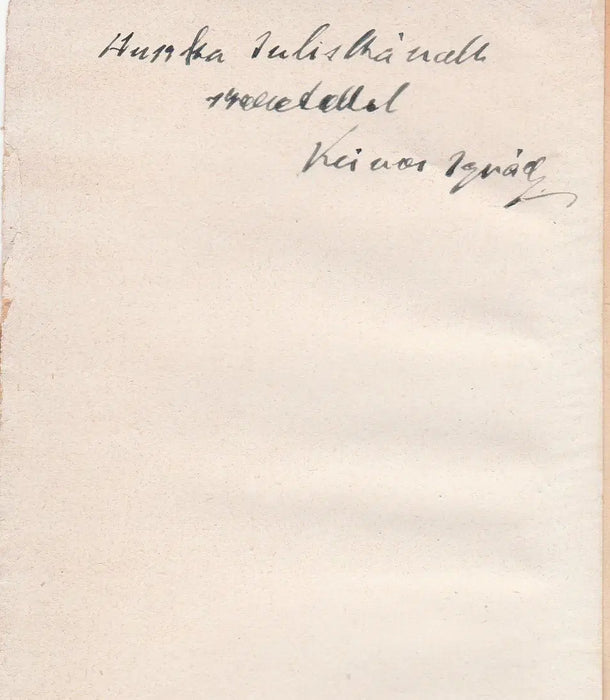 Huszka Juliskának
szeretettel
Ignác